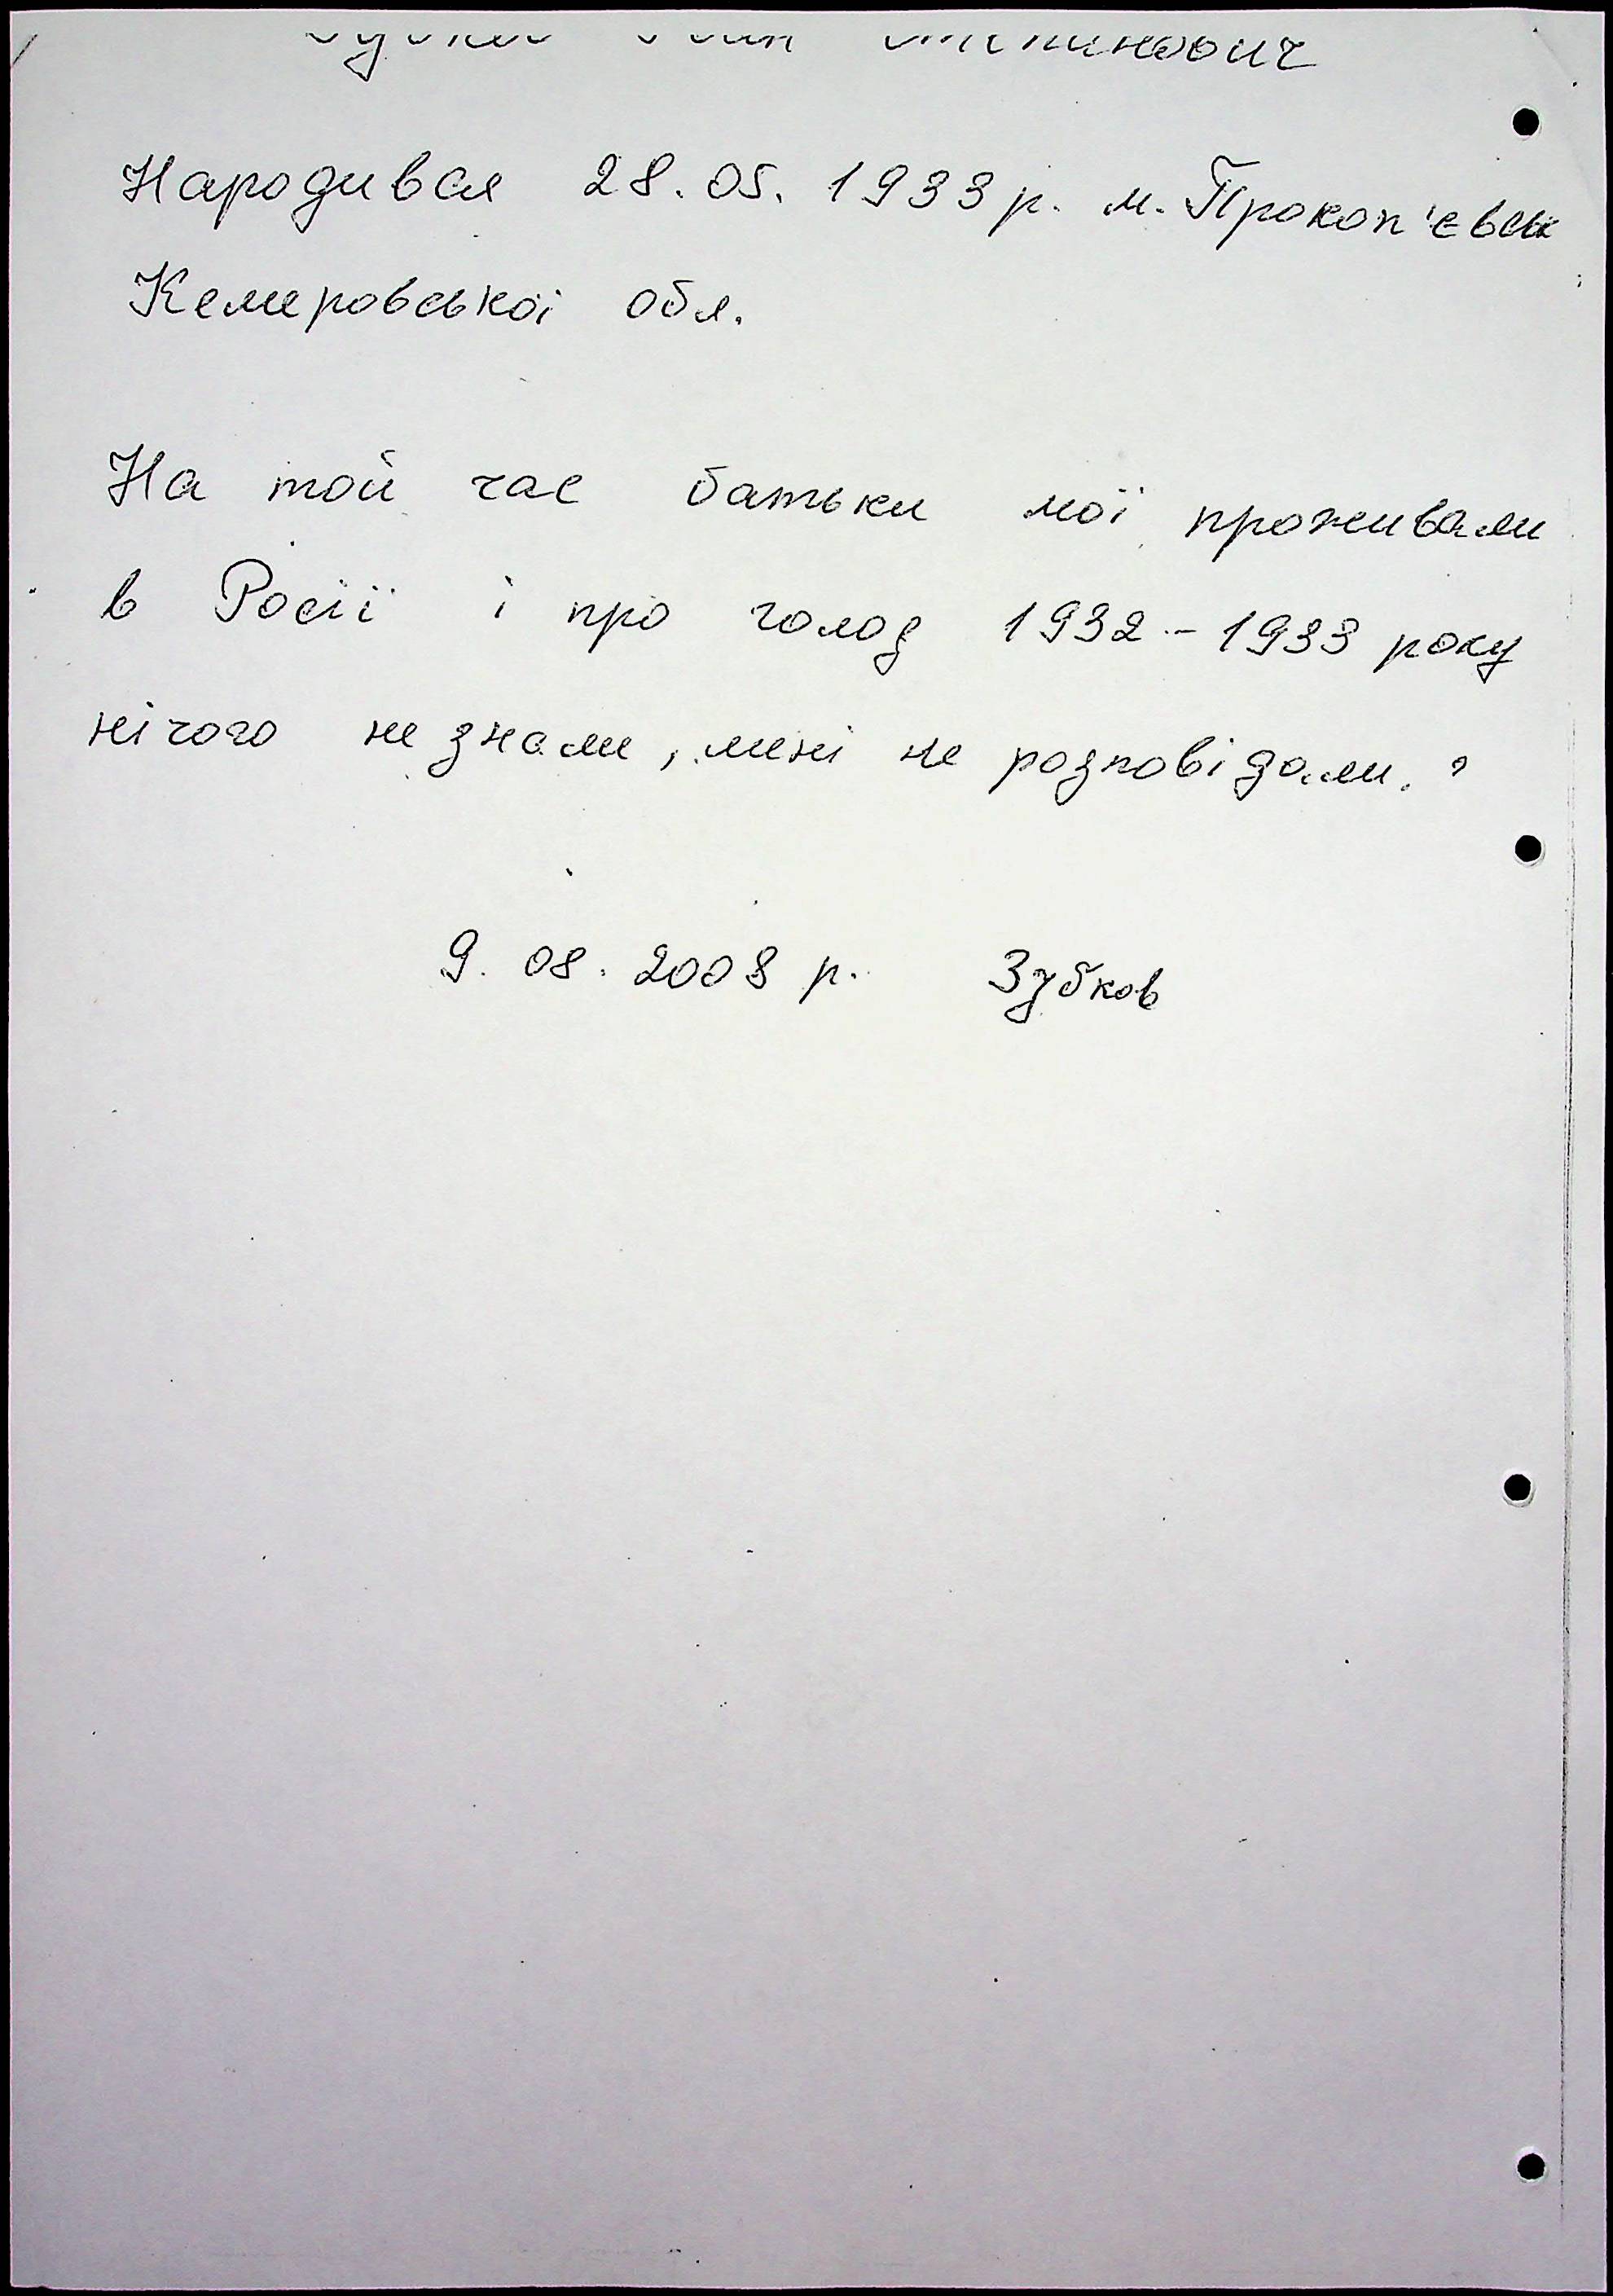 Народився 28.05.1933 р. м. Прокоп'євськ
Кемеровської обл.
На той час батьки мої проживали
в Росії і про голод 1932-1933 року
нічого не знали, мені не розповідали.
9.08.2008 р. Зубков